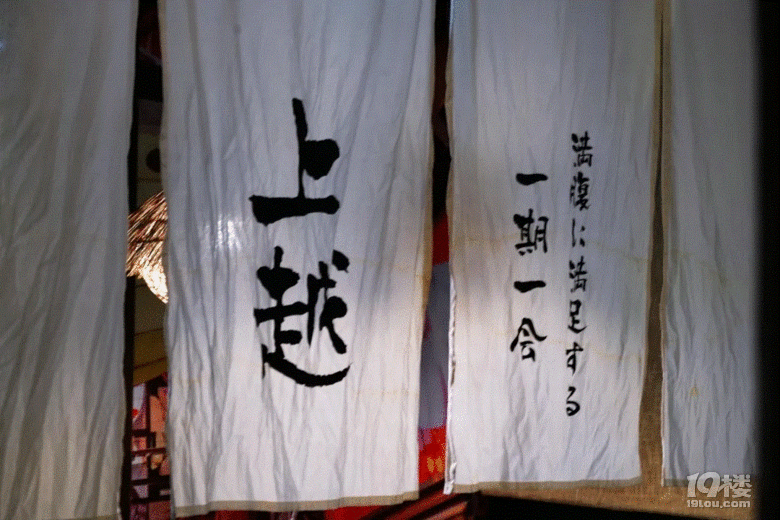 満腹に満足する
一期一会
上越
19楼
19lou.com